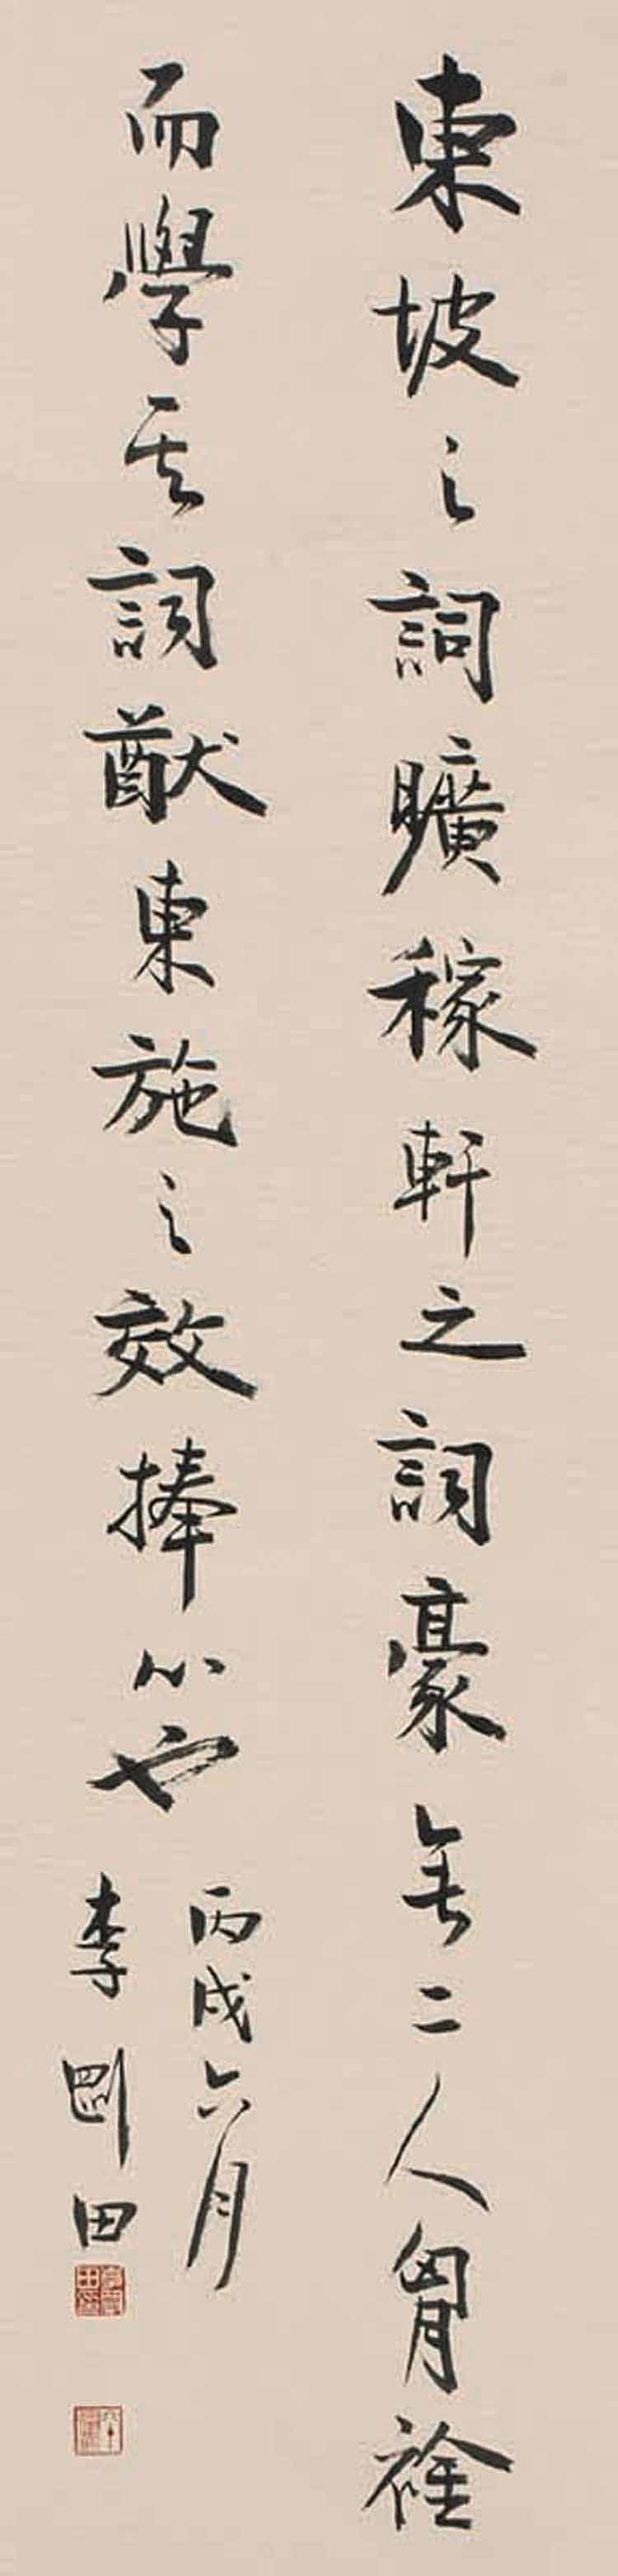 東坡之詞曠稼軒之詞豪無二人胷襟
而學其詞猷東施之效捧心也
丙戌六月
李剛田